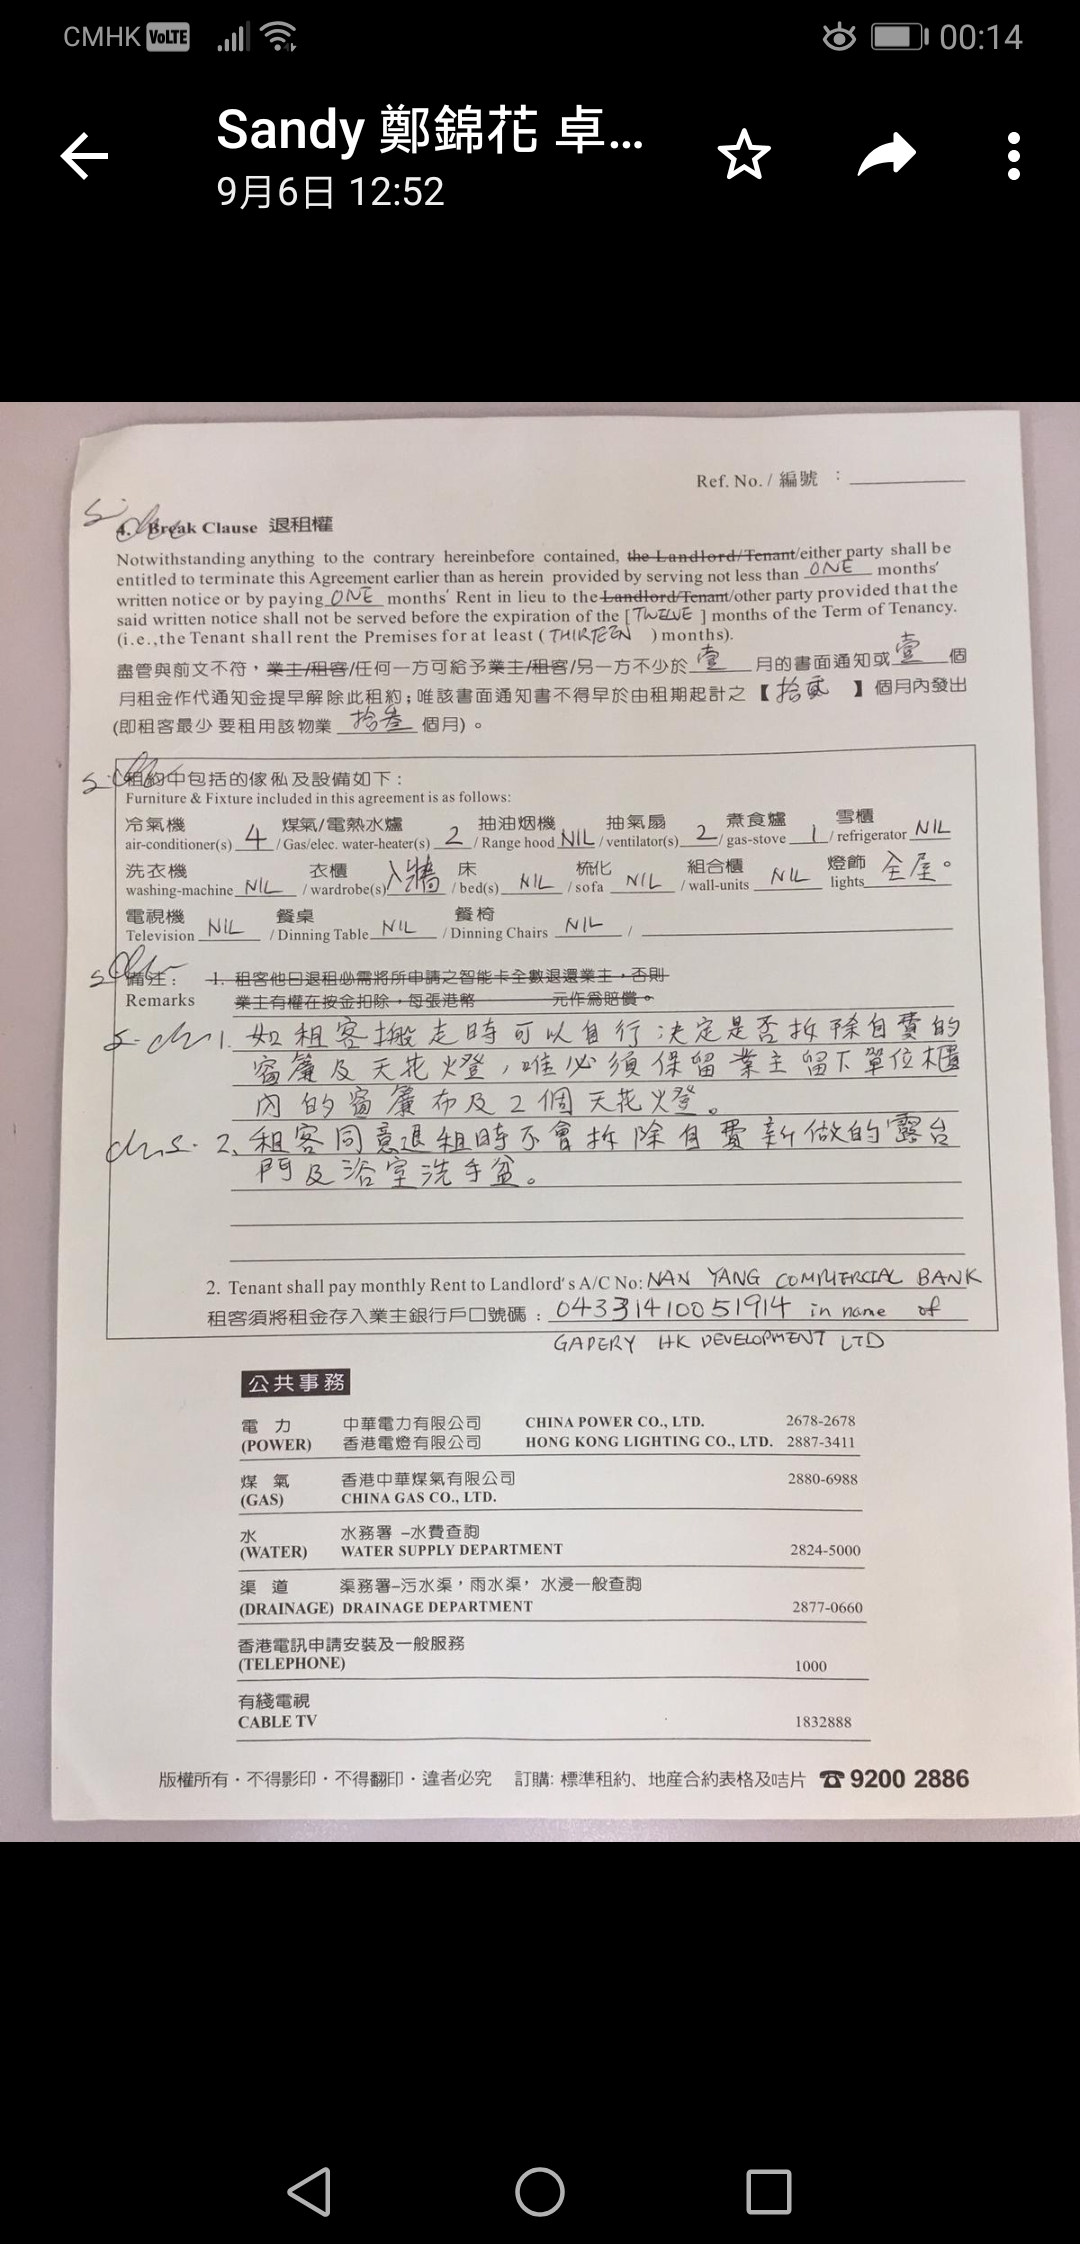 CMHK VoLTE 00:14
Sandy 鄭錦花 卓...
9月6日 12:52
Ref. No. / 編號 :
4. Break Clause 退租權
Notwithstanding anything to the contrary hereinbefore contained, the Landlord/Tenant/either party shall be
entitled to terminate this Agreement earlier than as herein provided by serving not less than ONE months'
written notice or by paying ONE months' Rent in lieu to the Landlord/Tenant/other party provided that the
said written notice shall not be served before the expiration of the [TWELVE] months of the Term of Tenancy.
(i.e.,the Tenant shall rent the Premises for at least (THIRTEEN) months).
盡管與前文不符，業主/租客/任何一方可給予業主/租客/另一方不少於壹月的書面通知或壹個
月租金作代通知金提早解除此租約；唯該書面通知書不得早於由租期起計之【拾貳】個月內發出
(即租客最少要租用該物業拾叁個月)。
租約中包括的傢俬及設備如下：
Furniture & Fixture included in this agreement is as follows:
冷氣機 煤氣/電熱水爐 抽油烟機 抽氣扇 煮食爐 雪櫃
air-conditioner(s) 4 / Gas/elec. water-heater(s) 2 / Range hood NIL / ventilator(s) 2 / gas-stove 1 / refrigerator NIL
洗衣機 衣櫃 床 梳化 組合櫃 燈飾
washing-machine NIL / wardrobe(s) 入牆 / bed(s) NIL / sofa NIL / wall-units NIL lights 全屋。
電視機 餐桌 餐椅
Television NIL / Dinning Table NIL / Dinning Chairs NIL /
備注： 1. 租客他日退租必需將所申請之智能卡全數退還業主，否則
Remarks 業主有權在按金扣除，每張港幣 元作為賠償。
1. 如租客搬走時可以自行決定是否拆除自費的
窗簾及天花燈，唯必須保留業主留下單位櫃
內的窗簾布及2個天花燈。
2. 租客同意退租時不會拆除自費新做的露台
門及浴室洗手盆。
2. Tenant shall pay monthly Rent to Landlord's A/C No: NAN YANG COMMERCIAL BANK
租客須將租金存入業主銀行戶口號碼：04331410051914 in name of
GAPERY HK DEVELOPMENT LTD
公共事務
電力 中華電力有限公司 CHINA POWER CO., LTD. 2678-2678
(POWER) 香港電燈有限公司 HONG KONG LIGHTING CO., LTD. 2887-3411
煤氣 香港中華煤氣有限公司 2880-6988
(GAS) CHINA GAS CO., LTD.
水 水務署 –水費查詢
(WATER) WATER SUPPLY DEPARTMENT 2824-5000
渠道 渠務署–污水渠，雨水渠，水浸一般查詢
(DRAINAGE) DRAINAGE DEPARTMENT 2877-0660
香港電訊申請安裝及一般服務
(TELEPHONE) 1000
有綫電視
CABLE TV 1832888
版權所有·不得影印·不得翻印·違者必究 訂購: 標準租約、地産合約表格及咭片 ☎ 9200 2886